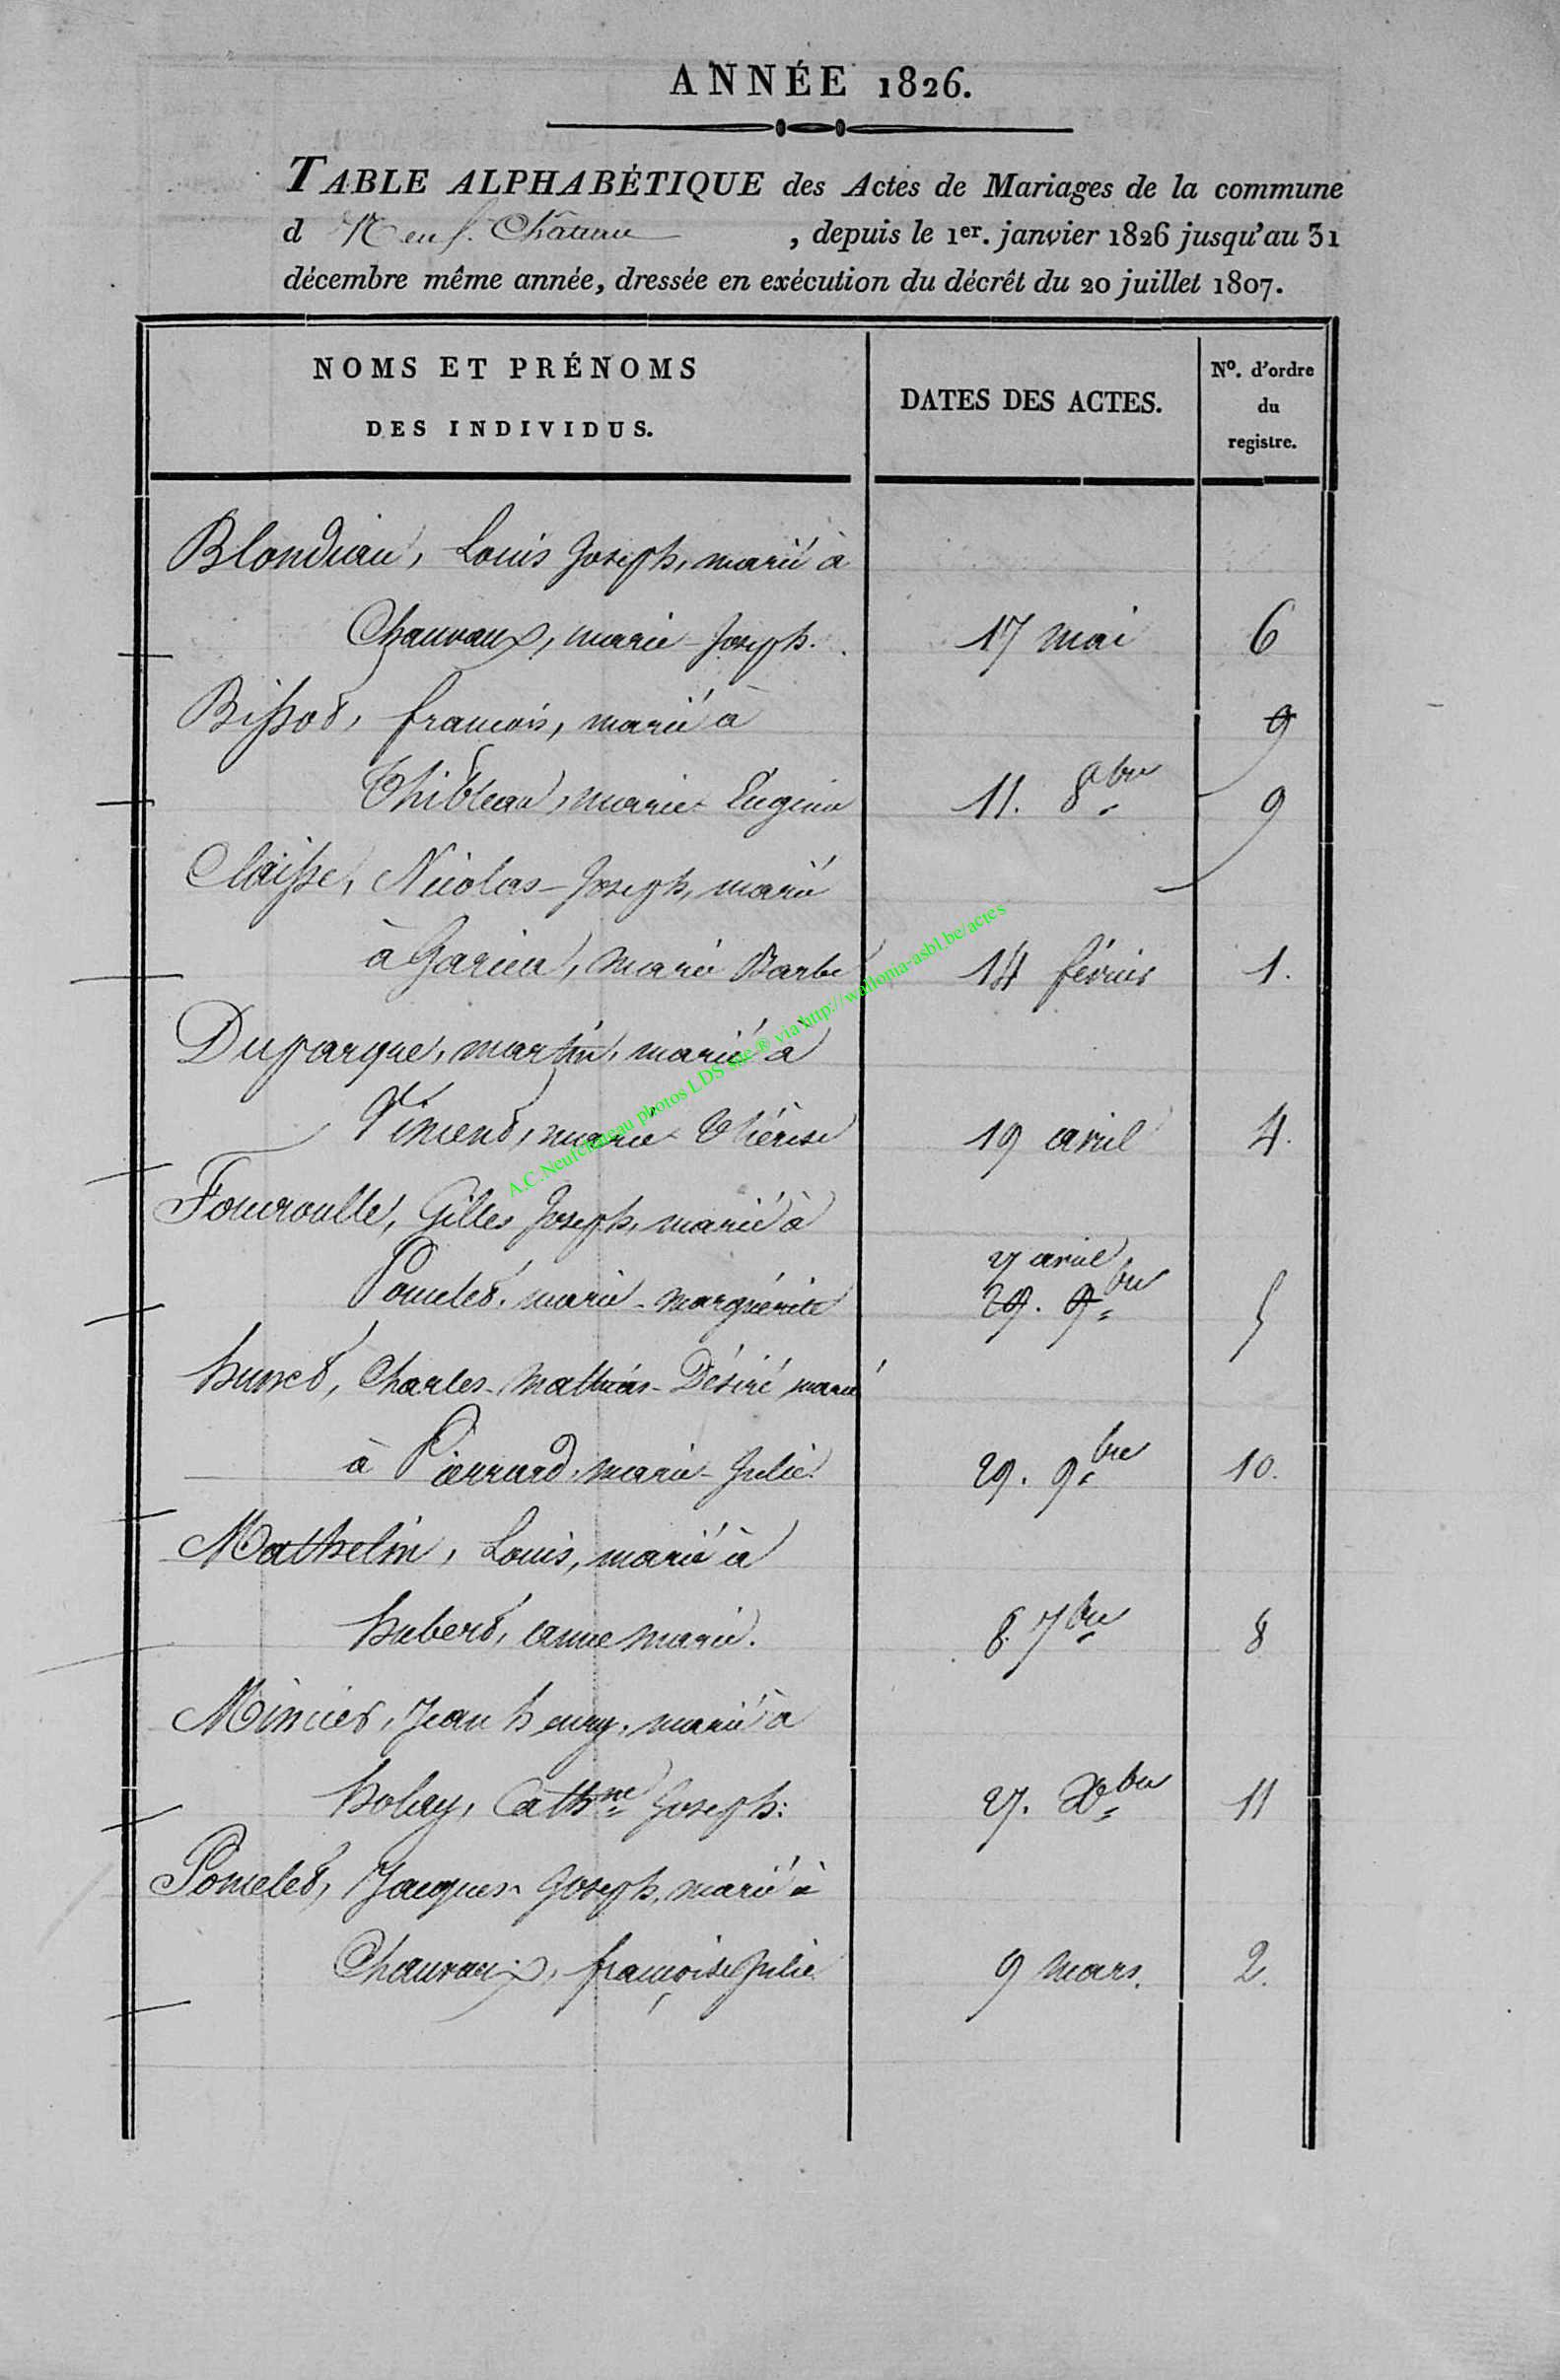 ANNÉE 1826.
TABLE ALPHABÉTIQUE des Actes de Mariages de la commune
d Neuf-Château , depuis le 1er. janvier 1826 jusqu'au 31
décembre même année, dressée en exécution du décrêt du 20 juillet 1807.
NOMS ET PRÉNOMS
DES INDIVIDUS.
DATES DES ACTES.
No. d'ordre
du
registre.
Blondiau, Louis Joseph, marié à
Chauvaux, marie-Joseph. 17 mai 6
françois, marié à 9
Thibleau, marie Eugénie 11. 8bre 9
Claisse, Nicolas-Joseph, marié
à marie Barbe 14 février 1.
Duparque, martin, marié à
marie Thérèse 19 avril 4.
Fouroulle, Gilles Joseph, marié à
27 avril
Poncelet, marie-marguérite 29. 9bre 5
Charles-Mathias-Désiré marié
à Pierrard, marie-Julie. 29. 9bre 10.
Mathelin, Louis, marié à
hubert, anne marie. 8. 7bre 8
Jean henry, marié à
Cathne Joseph: 27. Xbre 11
Poncelet, Jacques-Joseph, marié à
Chauvaux, françoise Julie 9 mars. 2.
A.C.Neufchâteau photos LDS sge ® via http://wallonia-asbl.be/actes